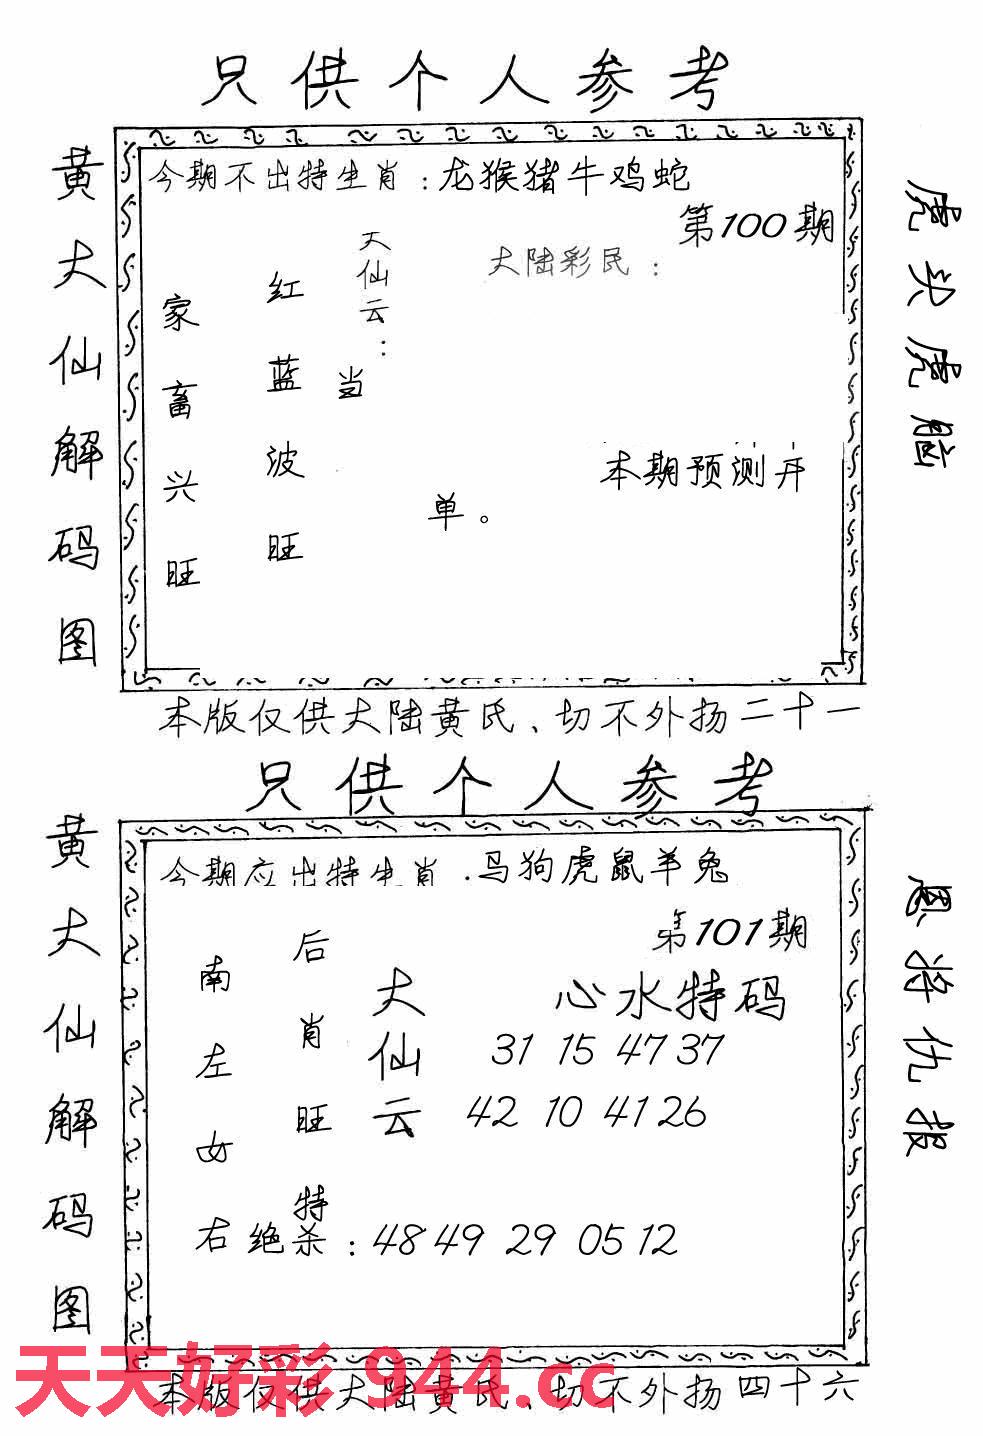 只供个人参考
黄大仙解码图
今期不出特生肖：龙猴猪牛鸡蛇
第100期
大陆彩民：
天仙云：
当
红蓝波旺
家畜兴旺
本期预测开
单。
虎头虎脑
本版仅供大陆黄氏、切不外扬二十一
只供个人参考
黄大仙解码图
今期应出特生肖：马狗虎鼠羊兔
第101期
心水特码
大仙云
31 15 47 37
42 10 41 26
后肖旺特
南左女右
绝杀：48 49 29 05 12
恩将仇报
本版仅供大陆黄氏、切不外扬四十六
天天好彩 944.cc